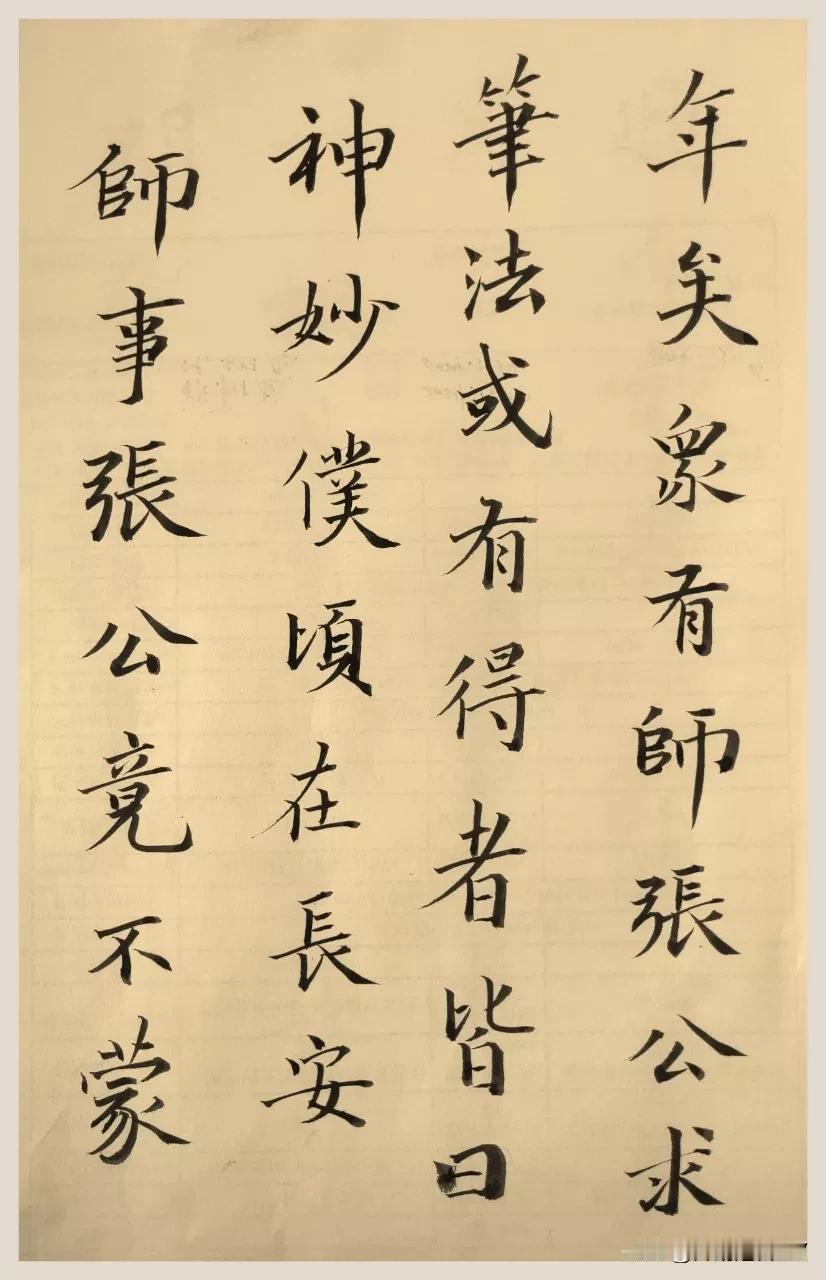 年矣眾有師張公求
筆法或有得者皆曰
神妙僕頃在長安
師事張公竟不蒙